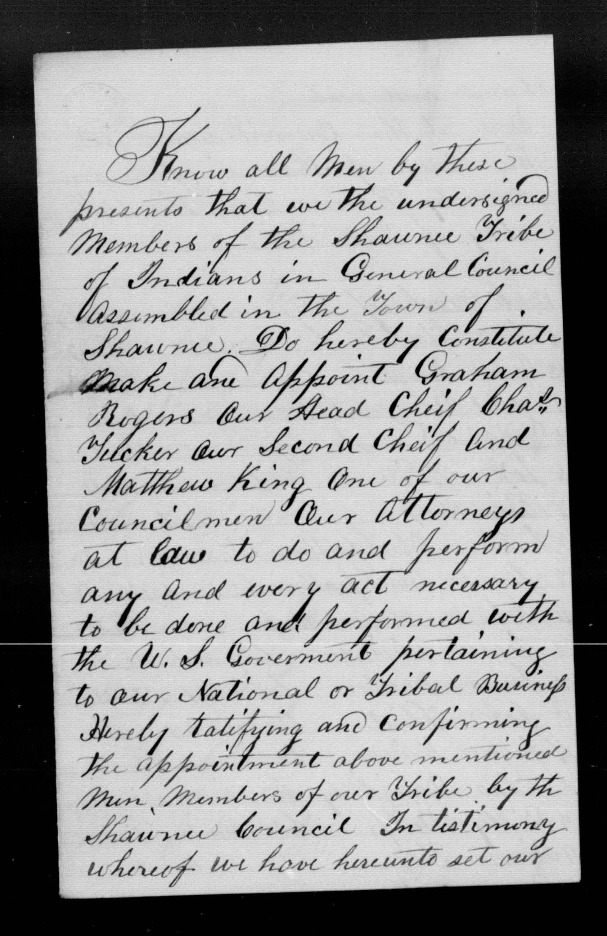 Know all Men by these
presents that we the undersigned
Members of the Shawnee Tribe
of Indians in General Council
Assembled in the Town of
Shawnee. Do hereby Constitute
Make and Appoint Graham
Rogers Our Head Cheif Chas.
Tucker Our Second Cheif And
Matthew King One of our
Councilmen Our Attorneys
at law to do and perform
any And every act necessary
to be done and performed with
the U. S. Goverment pertaining
to our National or Tribal Business
Hereby Ratifying and Confirming
the appointment above mentioned
Men, Members of our Tribe by th
Shawnee Council In testimony
whereof we have hereunto set our